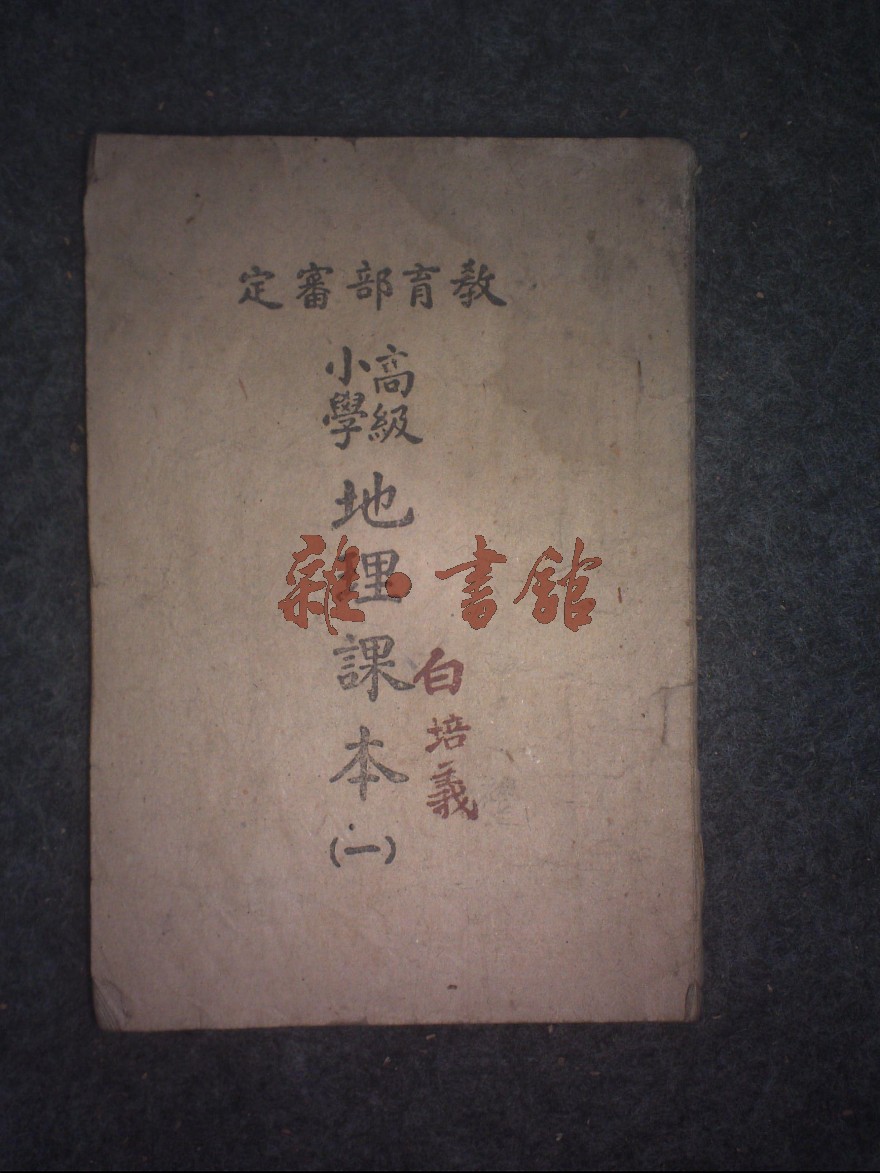 教育部審定
高級
小學
地理課本
(一)
雜·書館
白培義